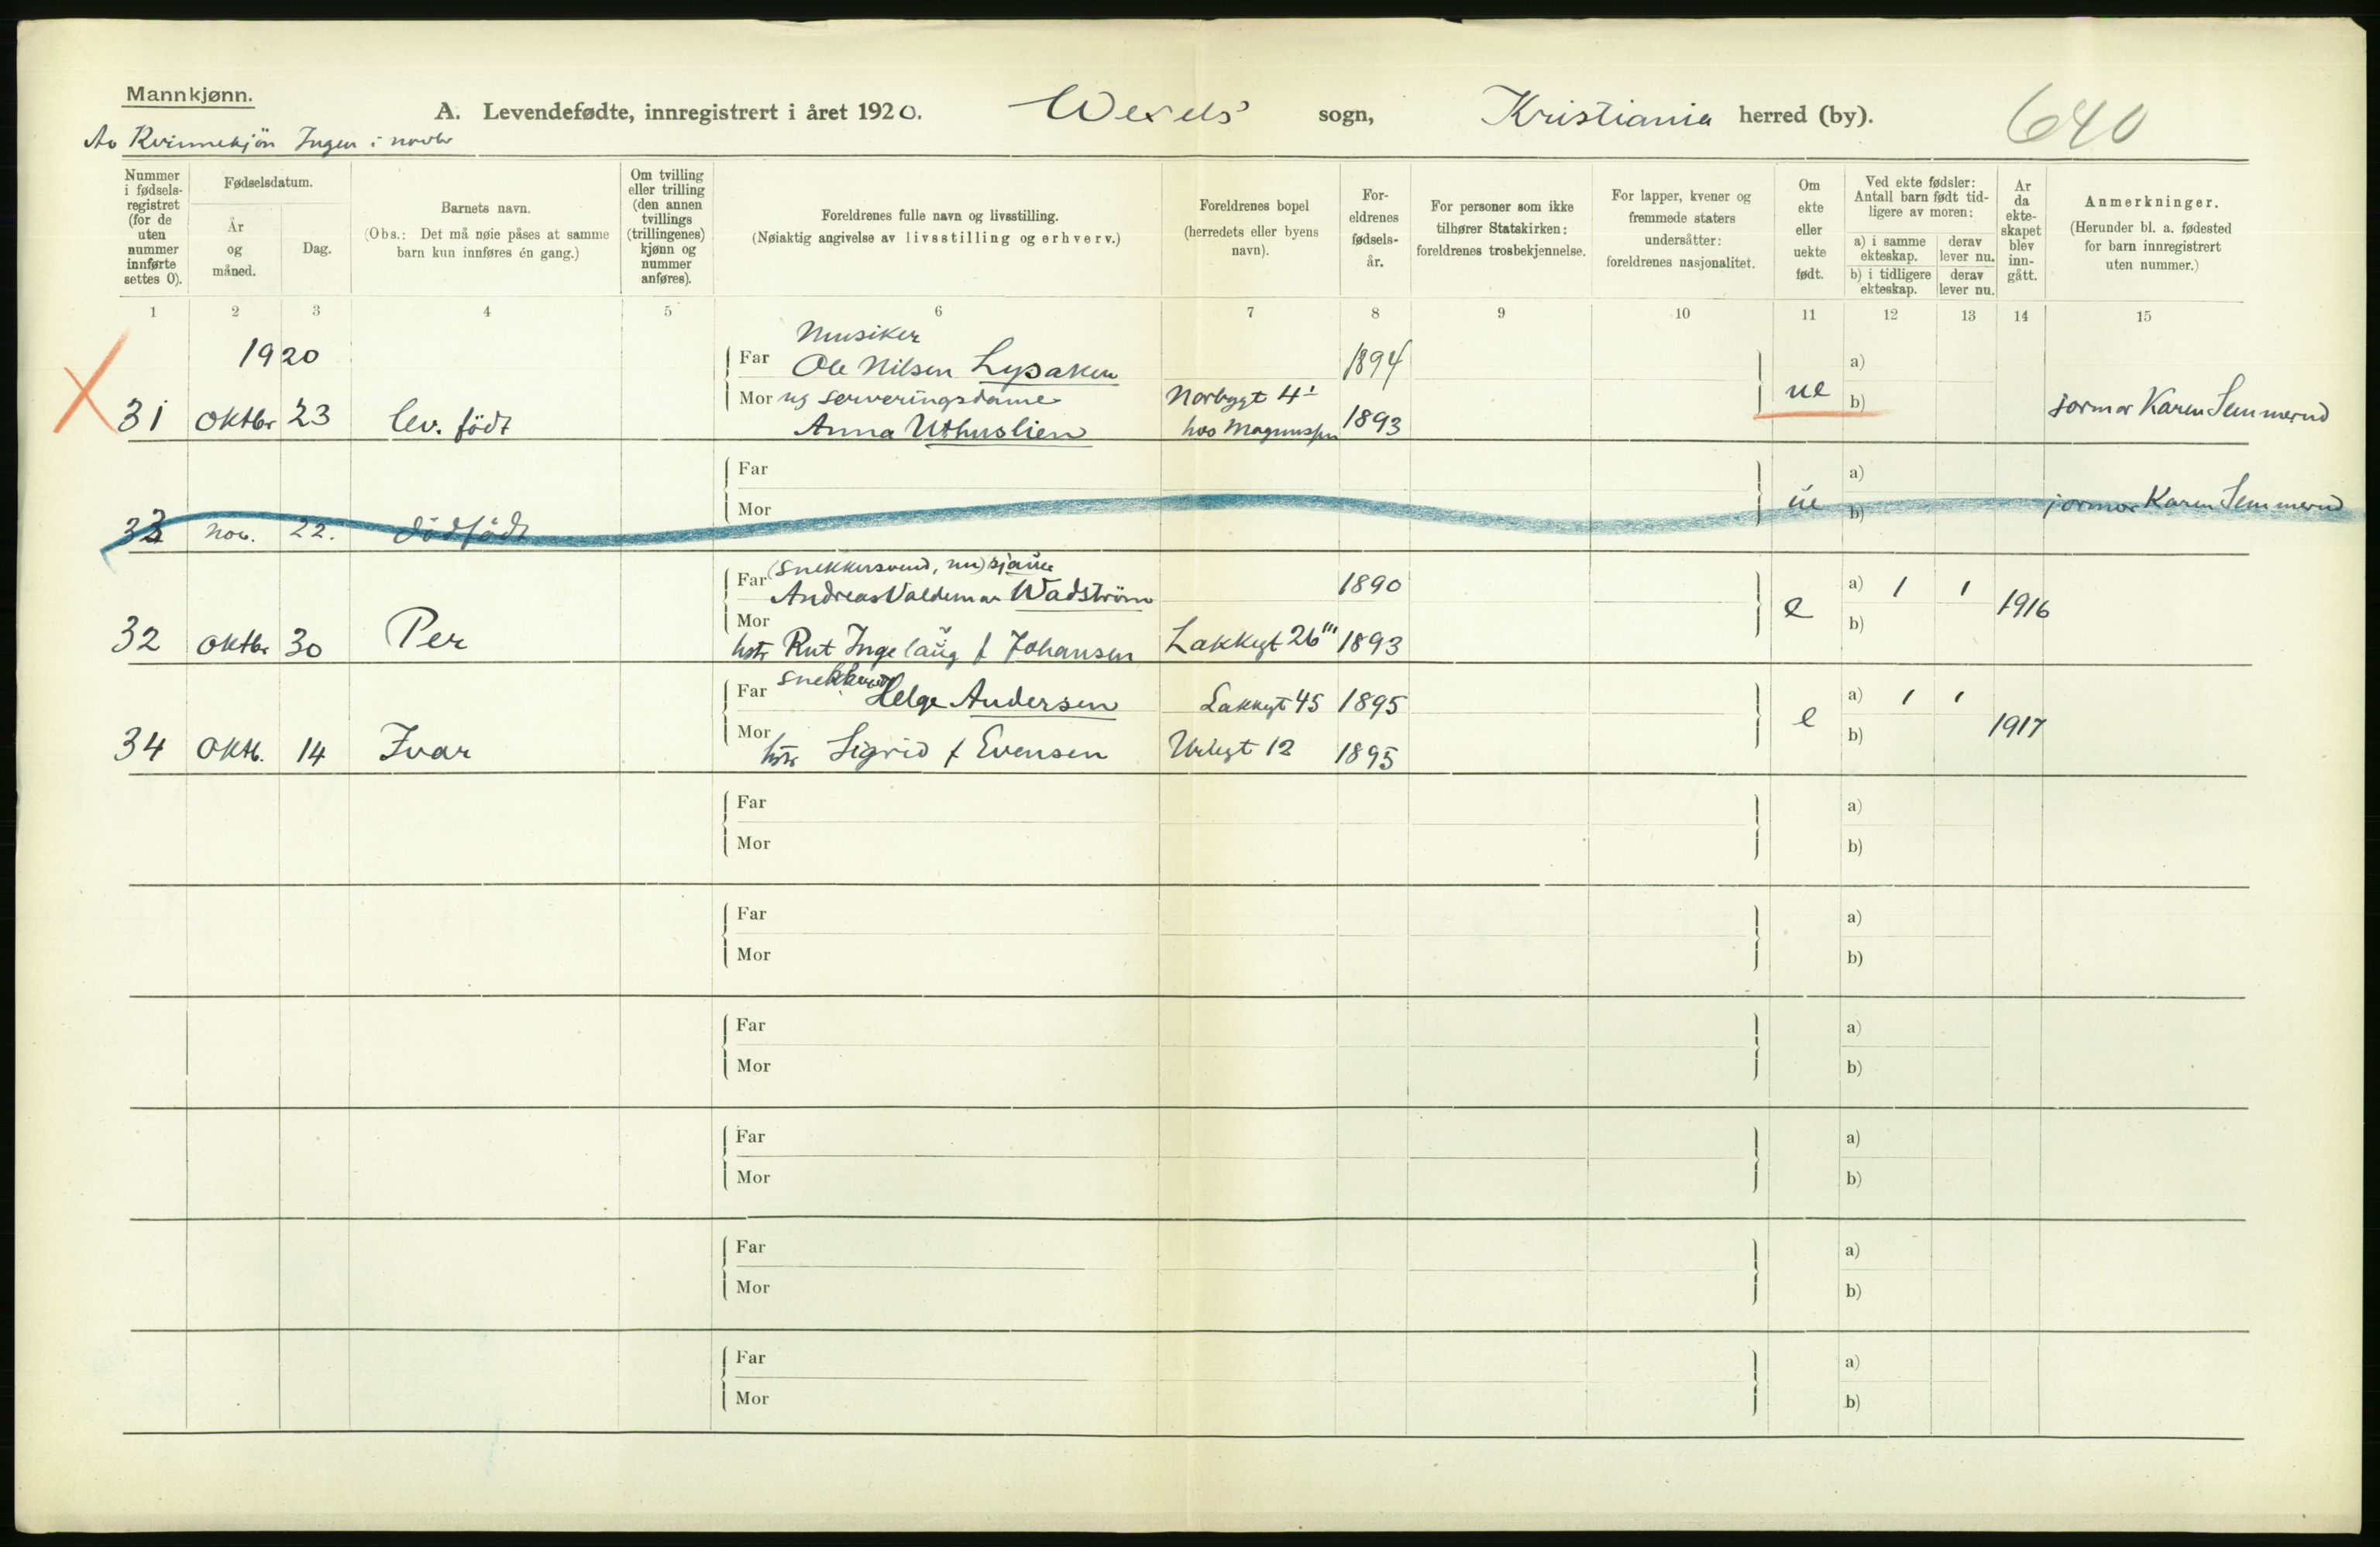 Mannkjønn.
A. Levendefødte, innregistrert i året 1920. Wexels' sogn, Kristiania herred (by). 640
Av Kvinnekjön Ingen i novbr
Nummer i fødselsregistret (for de uten nummer innførte settes 0).
Fødselsdatum.
År og måned.
Dag.
Barnets navn.
(Obs.: Det må nøie påses at samme barn kun innføres én gang.)
Om tvilling eller trilling (den annen tvillings (trillingenes) kjønn og nummer anføres).
Foreldrenes fulle navn og livsstilling.
(Nøiaktig angivelse av livsstilling og erhverv.)
Foreldrenes bopel (herredets eller byens navn).
Foreldrenes fødselsår.
For personer som ikke tilhører Statskirken: foreldrenes trosbekjennelse.
For lapper, kvener og fremmede staters undersåtter: foreldrenes nasjonalitet.
Om ekte eller uekte født.
Ved ekte fødsler: Antall barn født tidligere av moren:
a) i samme ekteskap. derav lever nu.
b) i tidligere ekteskap. derav lever nu.
Ar da ekteskapet blev inngått.
Anmerkninger.
(Herunder bl. a. fødested for barn innregistrert uten nummer.)
1 2 3 4 5 6 7 8 9 10 11 12 13 14 15
1920 Musiker
Far Ole Nilsen Lysaker 1894 a)
Mor ug serveringsdame Norbygt 4 ue b)
31 oktbr 23 lev. födt Anna Uthuslien hos Magnussen 1893 jormor Karen Semmerud
Far a)
Mor ue b) jormor Karen Semmerud
33 nov. 22. dödfödt
Far (snekkersvend, nu) sjauer
Andreas Valdemar Wadström 1890 a) 1 1
Mor e b) 1916
32 oktbr 30 Per hstr Rut Ingelaug f Johansen Lakkegt 26''' 1893
Far snekkersv Helge Andersen Lakkegt 45 1895 a) 1 1
Mor e b) 1917
34 oktb. 14 Ivar hstr Sigrid f Evensen Urtegt 12 1895
Far a)
Mor b)
Far a)
Mor b)
Far a)
Mor b)
Far a)
Mor b)
Far a)
Mor b)
Far a)
Mor b)